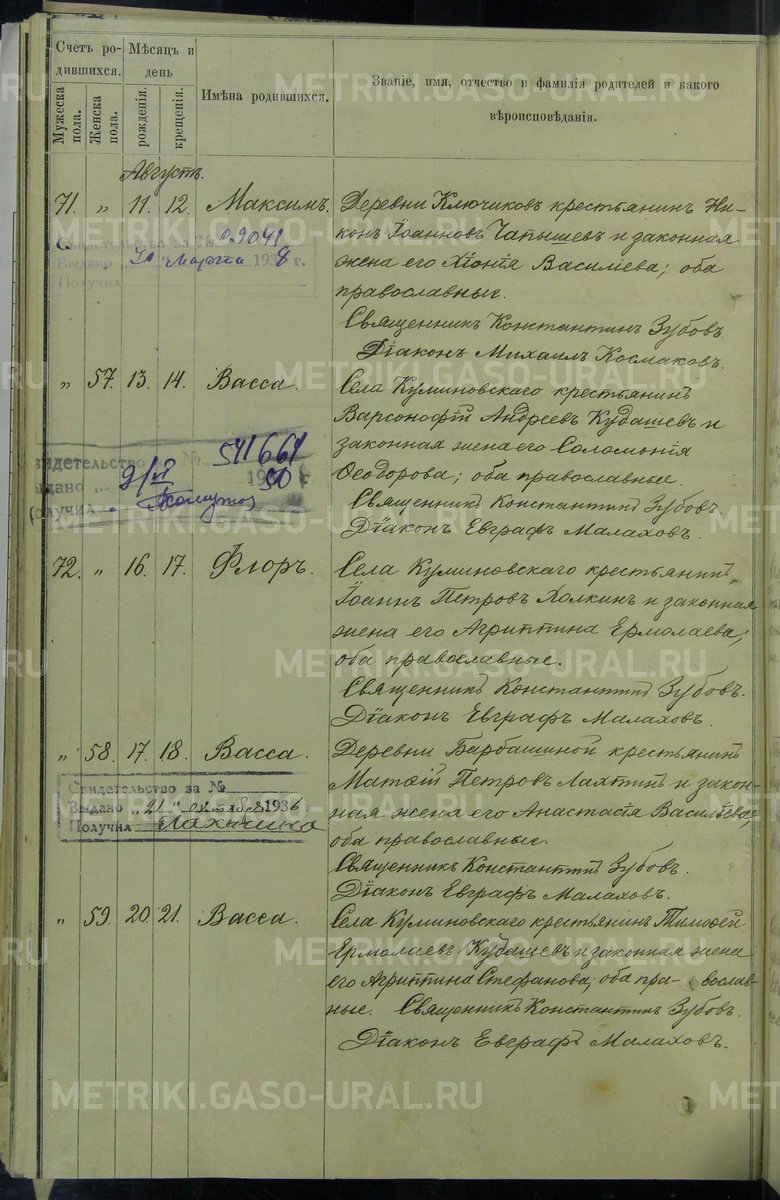 Счетъ ро-
дившихся.
Мѣсяцъ и
день
Имѣна родившихся.
Званіе, имя, отчество и фамилія родителей и какого
вѣроисповѣданія.
Мужеска
пола.
Женска
пола.
рожденія.
крещенія.
Августъ.
71. „ 11. 12. Максимъ. Деревни Ключиковъ крестьянинъ Ни-
конъ Іоанновъ Чапышевъ и законная
жена его Хіонія Василіева; оба
православные.
Священникъ Константинъ Зубовъ.
Діаконъ Михаилъ Космаковъ.
Свидетельство за № 09041
Выдано „31" Марта 1938 г.
Получил
„ 57. 13. 14. Васса. Села Куминовскаго крестьянинъ
Варсонофій Андреевъ Кудашевъ и
законная жена его Соломонія
Ѳеодорова; оба православные.
Священникъ Константинъ Зубовъ.
Діаконъ Евграфъ Малаховъ.
видетельство № 541661
ыдано „
получил
72. „ 16. 17. Флоръ. Села Куминовскаго крестьянинъ
Іоаннъ Петровъ Холкинъ и законная
жена его Агриппина Ермолаева;
оба православные.
Священникъ Константинъ Зубовъ.
Діаконъ Евграфъ Малаховъ.
„ 58. 17. 18. Васса. Деревни Барбашиной крестьянинъ
Матѳій Петровъ Лахтинъ и закон-
ная жена его Анастасія Василіева;
оба православные.
Священникъ Константинъ Зубовъ.
Діаконъ Евграфъ Малаховъ.
Свидетельство за №
Выдано „21" 1936
Получил
„ 59. 20. 21. Васса. Села Куминовскаго крестьянинъ Тимоѳей
Ермолаевъ Кудашевъ и законная жена
его Агриппина Стефанова; оба пра- вослав-
ные. Священникъ Константинъ Зубовъ.
Діаконъ Евграфъ Малаховъ.
METRIKI.GASO-URAL.RU